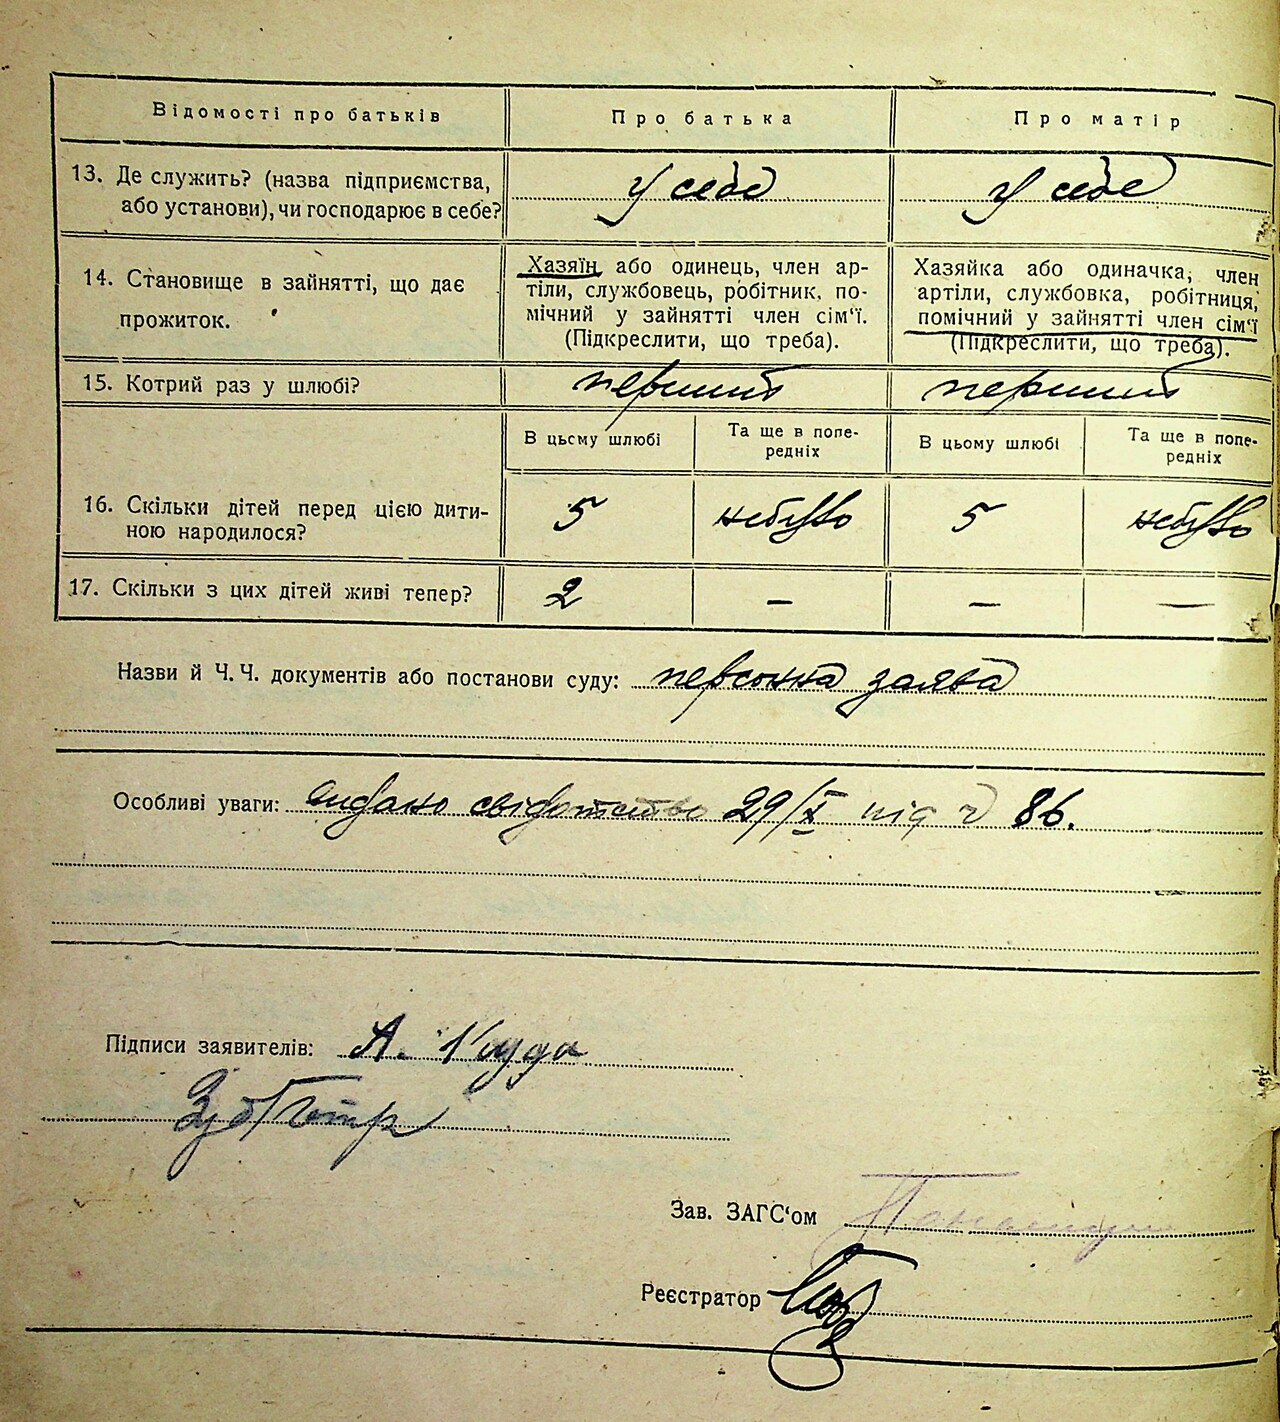 Відомості про батьків
Про батька
Про матір
13. Де служить? (назва підприємства,
або установи), чи господарює в себе?
У себе
У себе
14. Становище в зайнятті, що дає
прожиток.
Хазяїн, або одинець, член ар-
тіли, службовець, робітник, по-
мічний у зайнятті член сім‘ї.
(Підкреслити, що треба).
Хазяйка або одиначка, член
артіли, службовка, робітниця,
помічний у зайнятті член сім‘ї
(Підкреслити, що треба).
15. Котрий раз у шлюбі?
первший
перший
В цьсму шлюбі
Та ще в попе-
редніх
В цьому шлюбі
Та ще в попе-
редніх
16. Скільки дітей перед цією дити-
ною народилося?
5
небуло
5
небуло
17. Скільки з цих дітей живі тепер?
2
–
–
–
Назви й Ч. Ч. документів або постанови суду: персонна заява
Особливі уваги: видано свідотство 29/X під ч 86.
Підписи заявителів: А.
Зав. ЗАГС‘ом
Реєстратор